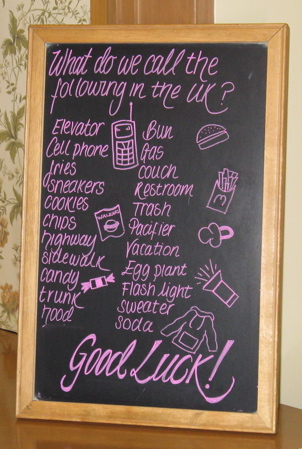 What do we call the
following in the UK?
Elevator
Cell phone
fries
sneakers
cookies
chips
highway
sidewalk
candy
trunk
hood
Bun
Gas
couch
Restroom
Trash
Pacifier
Vacation
Egg plant
Flash light
sweater
soda
WALKERS
Good Luck!